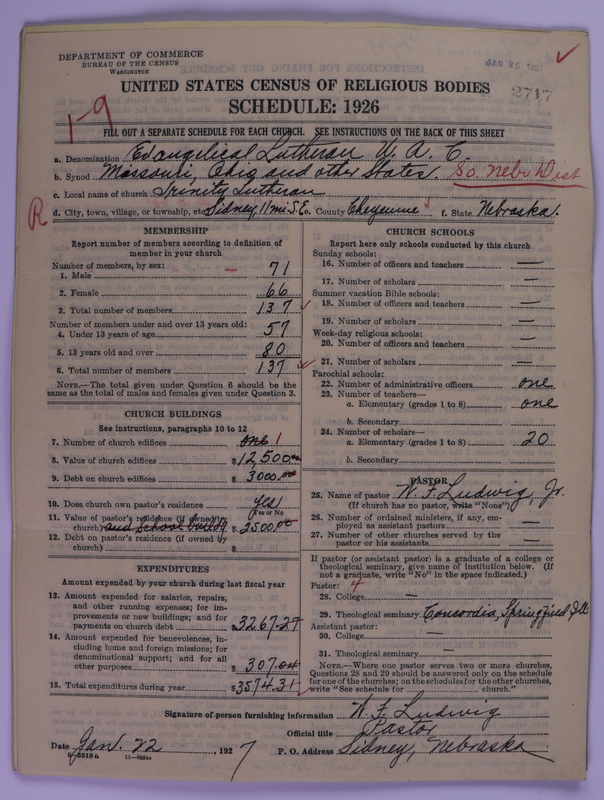 DEPARTMENT OF COMMERCE
BUREAU OF THE CENSUS
WASHINGTON
JAN 25 1927
2717
UNITED STATES CENSUS OF RELIGIOUS BODIES
SCHEDULE: 1926
1-9
FILL OUT A SEPARATE SCHEDULE FOR EACH CHURCH. SEE INSTRUCTIONS ON THE BACK OF THIS SHEET
a. Denomination Evangelical Lutheran U. A. C.
b. Synod Missouri, Ohio and other States. So. Nebr Dist
c. Local name of church Trinity Lutheran
R
d. City, town, village, or township, etc. Sidney, 11 mi S.E. County Cheyenne f. State Nebraska.
MEMBERSHIP
Report number of members according to definition of member in your church
Number of members, by sex:
1. Male 71
2. Female 66
3. Total number of members 137
Number of members under and over 13 years old:
4. Under 13 years of age 57
5. 13 years old and over 80
6. Total number of members 137
NOTE.—The total given under Question 6 should be the same as the total of males and females given under Question 3.
CHURCH BUILDINGS
See instructions, paragraphs 10 to 12
7. Number of church edifices one 1
8. Value of church edifices $12,500.00
9. Debt on church edifices $3000.00
10. Does church own pastor's residence? Yes
Yes or No
11. Value of pastor's residence (if owned by church) and School building $2500.00
12. Debt on pastor's residence (if owned by church) $
EXPENDITURES
Amount expended by your church during last fiscal year
13. Amount expended for salaries, repairs, and other running expenses; for improvements or new buildings; and for payments on church debt $3267.27
14. Amount expended for benevolences, including home and foreign missions; for denominational support; and for all other purposes $307.04
15. Total expenditures during year $3574.31
CHURCH SCHOOLS
Report here only schools conducted by this church
Sunday schools:
16. Number of officers and teachers —
17. Number of scholars —
Summer vacation Bible schools:
18. Number of officers and teachers —
19. Number of scholars —
Week-day religious schools:
20. Number of officers and teachers —
21. Number of scholars —
Parochial schools:
22. Number of administrative officers one
23. Number of teachers—
a. Elementary (grades 1 to 8) one
b. Secondary
24. Number of scholars—
a. Elementary (grades 1 to 8) 20
b. Secondary
PASTOR
25. Name of pastor W. F. Ludwig, Jr.
(If church has no pastor, write "None")
26. Number of ordained ministers, if any, employed as assistant pastors —
27. Number of other churches served by the pastor or his assistants —
If pastor (or assistant pastor) is a graduate of a college or theological seminary, give name of institution below. (If not a graduate, write "No" in the space indicated.)
Pastor: 4
28. College —
29. Theological seminary Concordia, Springfield Ill
Assistant pastor:
30. College —
31. Theological seminary —
NOTE.—Where one pastor serves two or more churches, Questions 28 and 29 should be answered only on the schedule for one of the churches; on the schedules for the other churches, write "See schedule for church."
Signature of person furnishing information W. F. Ludwig
Official title Pastor
Date Jan. 22, 1927 P. O. Address Sidney, Nebraska